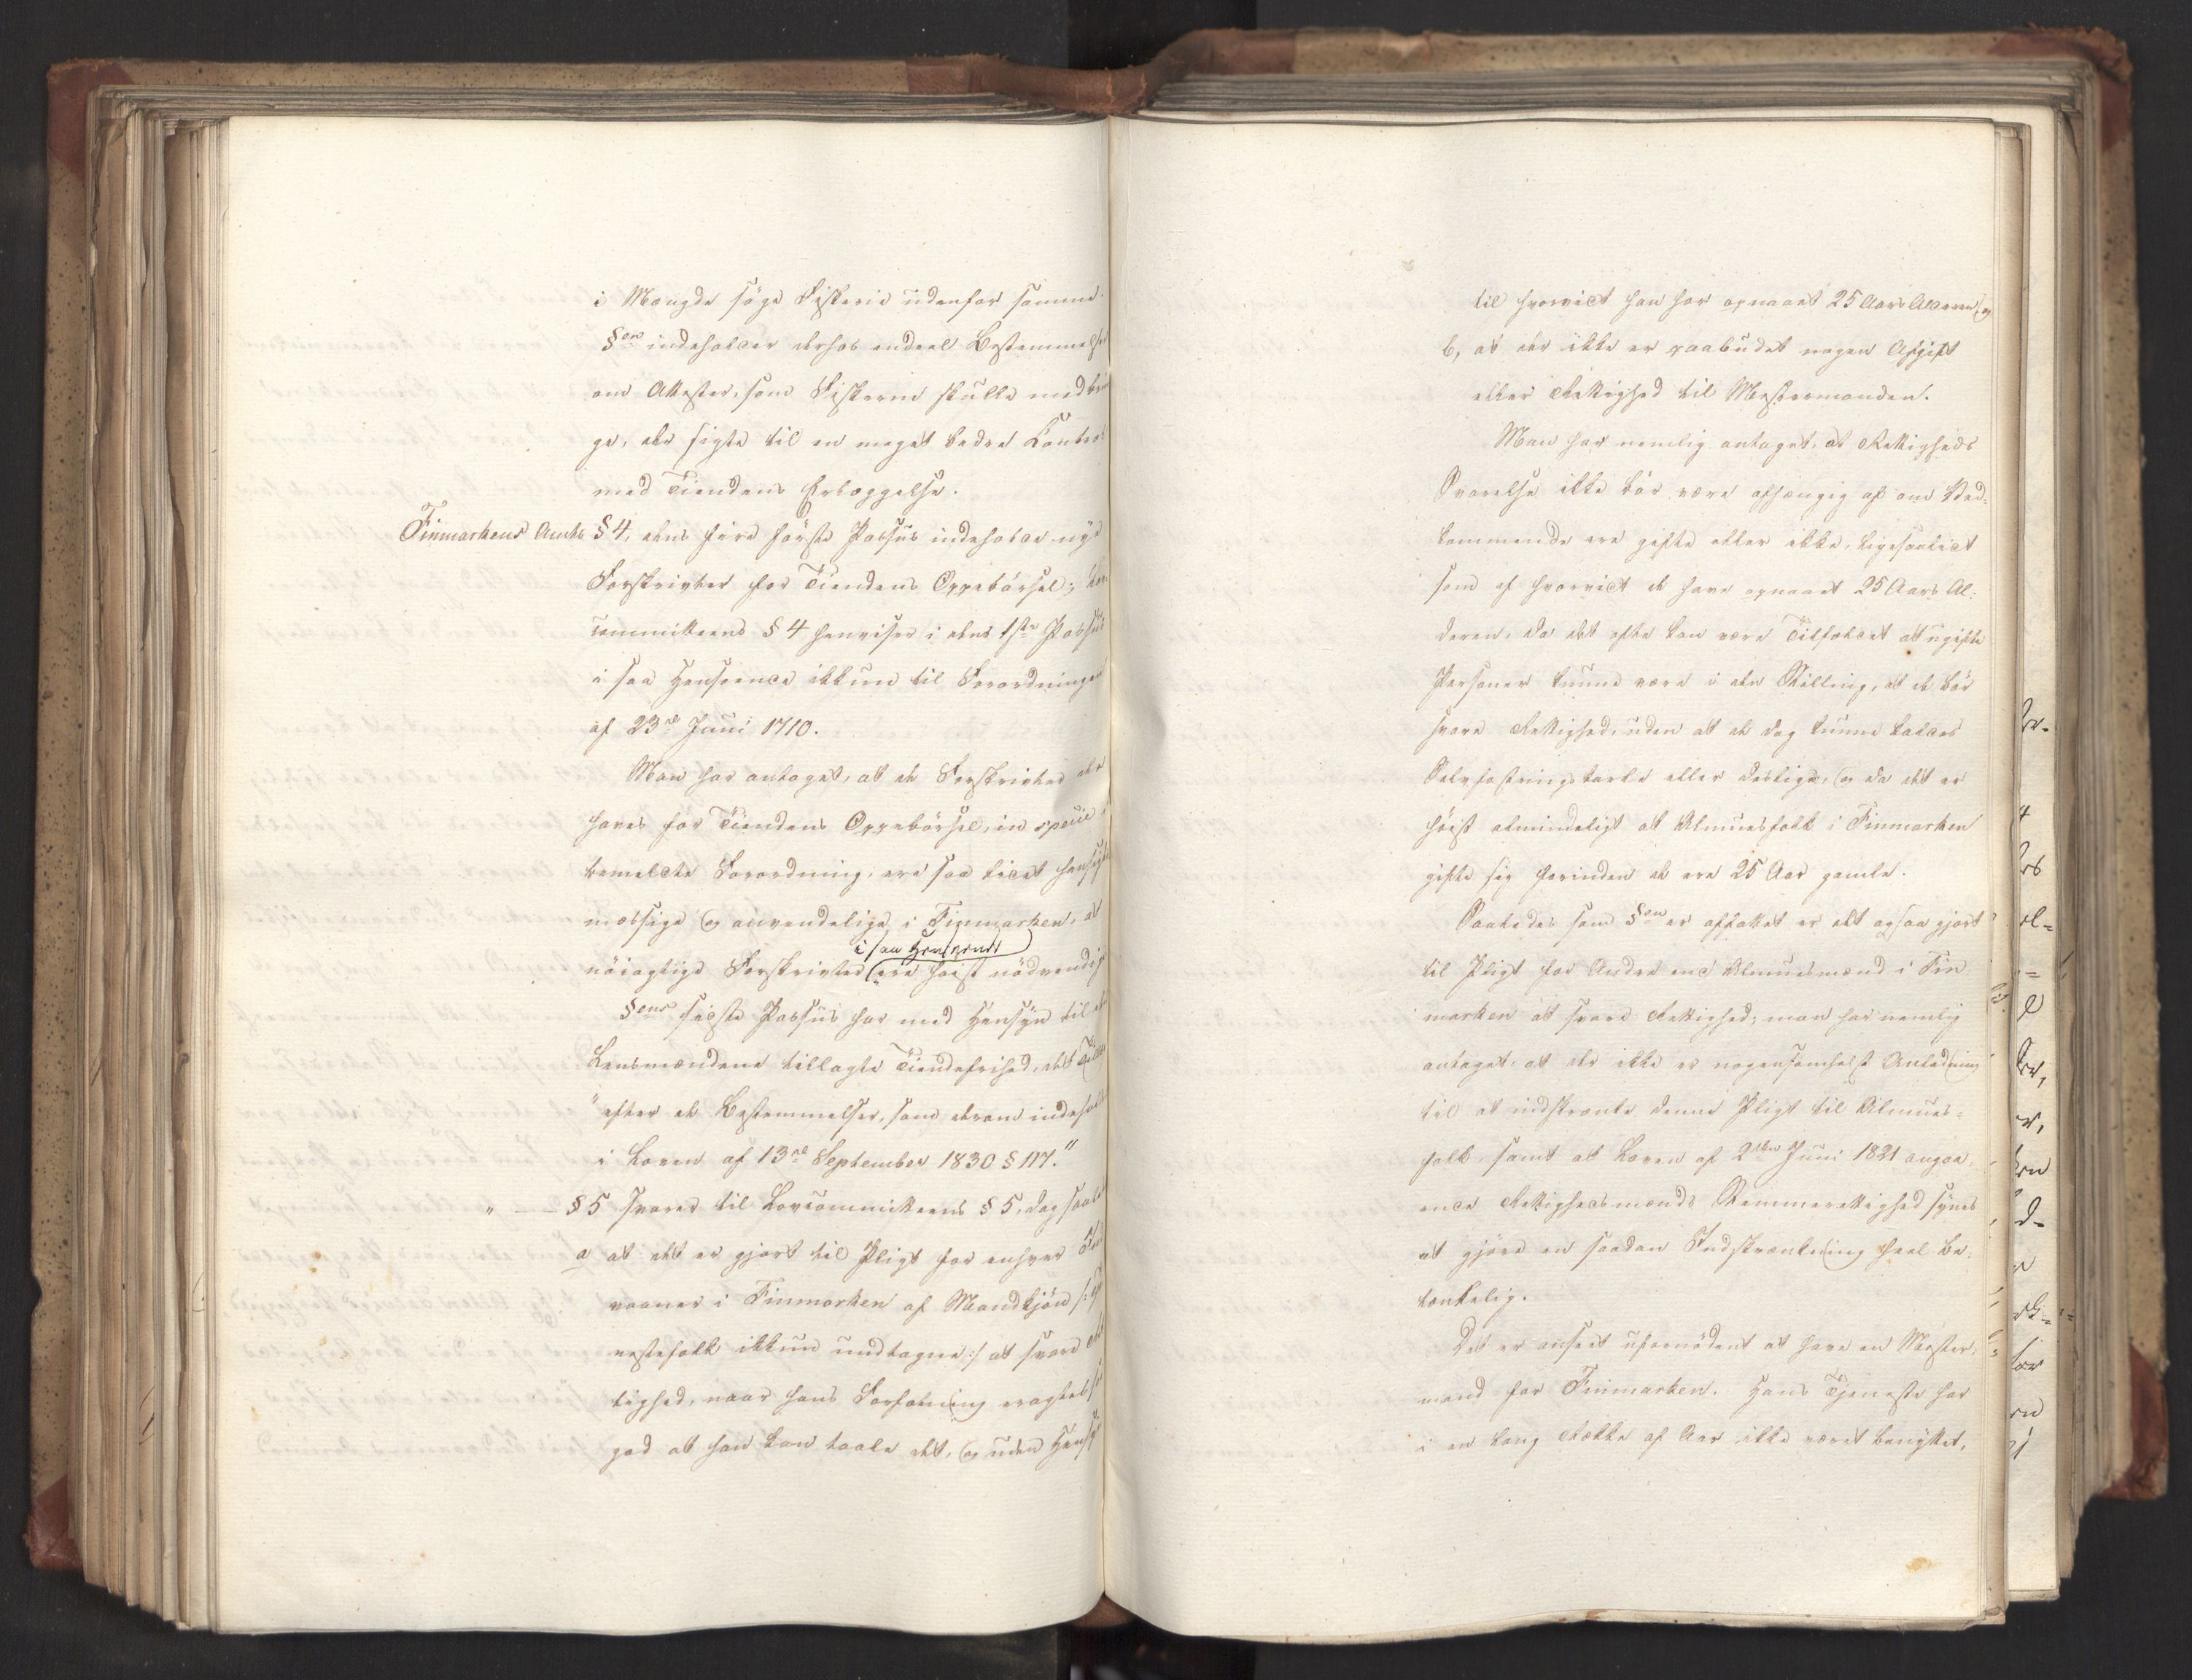 i Mængde søge Fiskerie udenfor samme.
§en indeholder derhos endeel Bestemmelser
om Attester, som Fiskerne skulle medbrin
ge, der sigte til en meget bedre Control
med Tiendens Erlæggelse.
Finmarkens Amts § 4, dens fire første Passus indeholde nye
Forskrivter for Tiendens Oppebørsel; Lov
committeens § 4 henviser i dens 1ste Passus
i saa Henseende ikkun til Forordningen
af 23de Juni 1710.
Man har antaget, at de Forskrivter der
haves for Tiendens Oppebørsel, in specie
bemeldte Forordning, ere saa lidet hensigts
mæssige og anvendelige i Finmarken, at
i saa Henseende
nöiagtige Forskrivter ere høist nödvendige
§ens sidste Passus har med Hensyn til den
Lensmændene tillagte Tiendefrihed, det Tillæg
"efter de Bestemmelser, som derom indeholdes
i Loven af 13de September 1830 § 117."
" — § 5 svarer til Lovcommitteens § 5, dog saaledes
a at det er gjort til Pligt for enhver Ind
vaaner i Finmarken af Mandkjön /: Tje
nestefolk ikkun undtagne :/ at svare Ret
tighed, naar hans Forfatning eragtes saa
god at han kan taale det, og uden Hensyn
til hvorvidt han har opnaaet 25 Aars Alderen, og
b, at der ikke er paabudet nogen Afgift
eller Rettighed til Mestermanden.
Man har nemlig antaget, at Rettigheds
Svarelse ikke bör være afhængig af om Ved-
kommende ere gifte eller ikke, ligesaalidt
som af hvorvidt de have opnaaet 25 Aars Al-
deren, da det ofte kan være Tilfældet at ugifte
Personer kunne være i den Stilling, at de bör
svare Rettighed, uden at de dog kunne kaldes
Selvfostringskarle eller deslige, og da det er
høist almindeligt at Almuesfolk i Finmarken
gifte sig forinden de ere 25 Aar gamle.
Saaledes som §en er affattet er det ogsaa gjort
til Pligt for Andre end Almuesmænd i Fin
marken at svare Rettighed; man har nemlig
antaget, at der ikke er nogensomhelst Anledning
til at indskrænke denne Pligt til Almues-
folk samt at Loven af 2den Juni 1821 angaa
ende Rettighedsmænds Stemmerettighed synes
at gjöre en saadan Indskrænkning heel be-
tænkelig.
Det er anseet ufornødent at have en Mester-
mand for Finmarken. Hans Tjeneste har
i en lang Række af Aar ikke været benyttet,